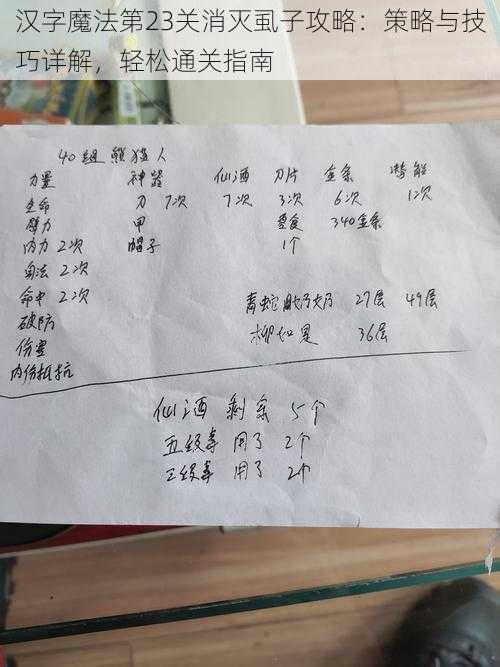 汉字魔法第23关消灭虱子攻略：策略与技
巧详解，轻松通关指南
40组 熊猫人
力量 神器 仙酒 刀片 金条 潜能
生命 刀 7次 7次 3次 6次 1次
臂力 甲 要食 340金条
内力 2次 帽子 1个
身法 2次
命中 2次 青蛇 27层 49层
破防 柳如是 36层
伤害
内伤抵抗
仙酒 剩余 5个
五级 用了 2个
三级 用了 2个